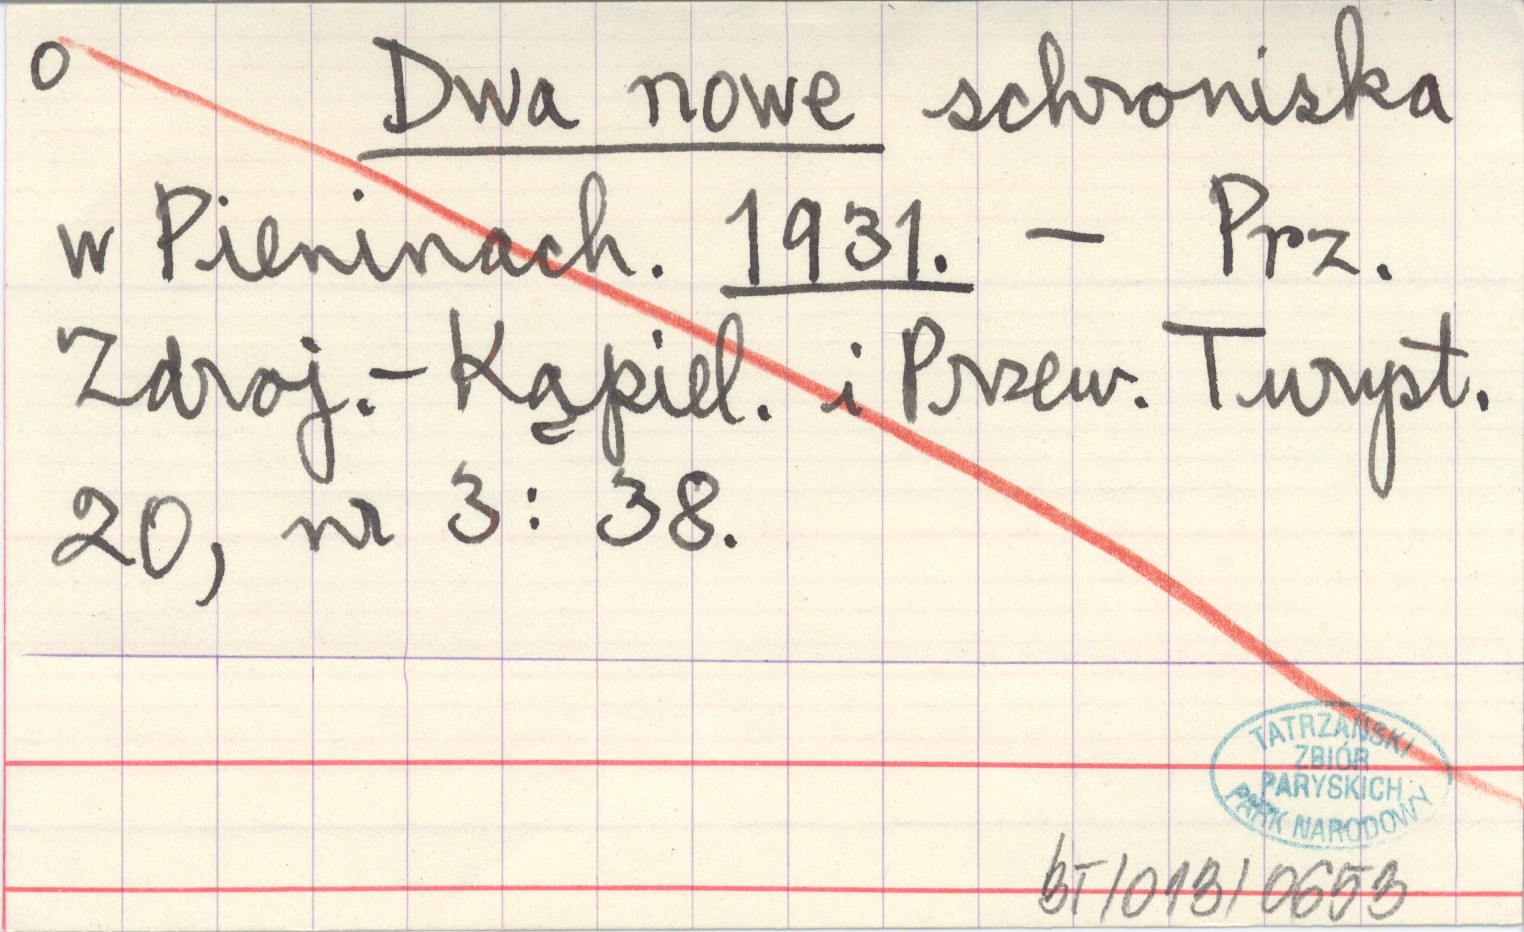 o Dwa nowe schroniska
w Pieninach. 1931. — Prz.
Zdroj.-Kąpiel. i Przew. Turyst.
20, nr 3: 38.
TATRZAŃSKI
ZBIÓR
PARYSKICH
PARK NARODOWY
BT/013/0653